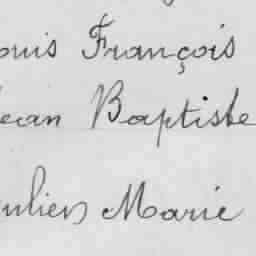 ouis François
Jean Baptiste
ulien Marie